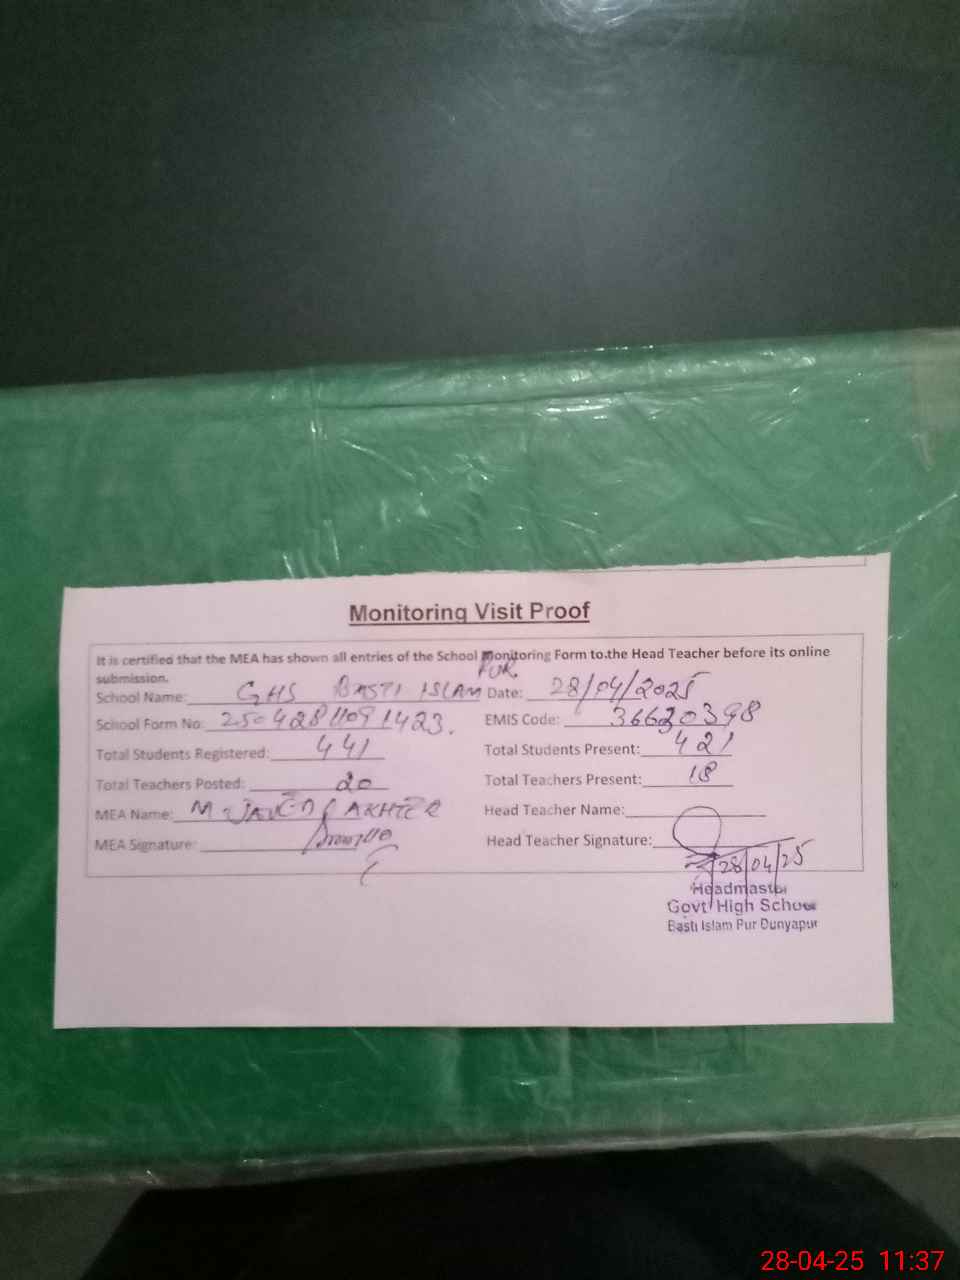 Monitoring Visit Proof
It is certified that the MEA has shown all entries of the School Monitoring Form to.the Head Teacher before its online
submission.
School Name: GHS BASTI ISLAM PUR Date: 28/04/2025
School Form No: 2504281109 1423. EMIS Code: 36630398
Total Students Registered: 441 Total Students Present: 421
Total Teachers Posted: 20 Total Teachers Present: 18
MEA Name: M JAVED AKHTER Head Teacher Name:
MEA Signature: Head Teacher Signature:
28/04/25
Headmaster
Govt High School
Basti Islam Pur Dunyapur
28-04-25 11:37